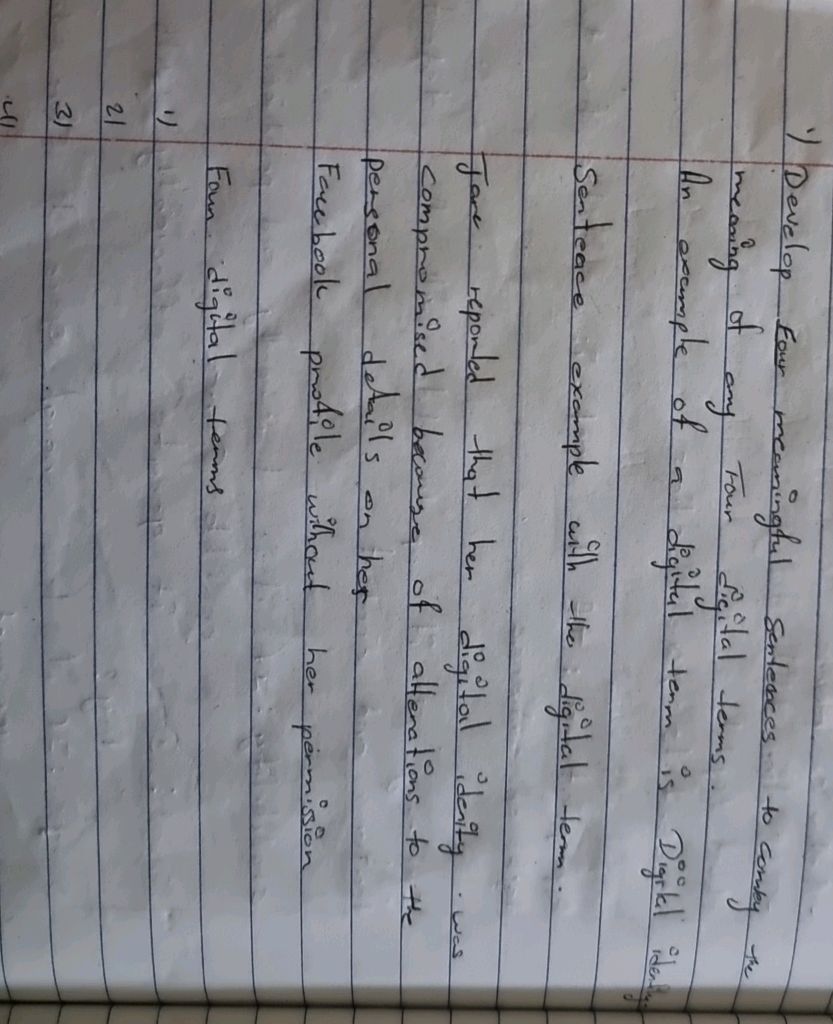 1) Develop Four meaningful Sentences to convey the
meaning of any Four digital terms.
An example of a digital term is Digital identity
Sentence example with the digital term.
Jane reported that her digital identity was
compromised because of alterations to the
personal details on her
Facebook profile without her permission
Four digital terms
1)
2)
3)
4)